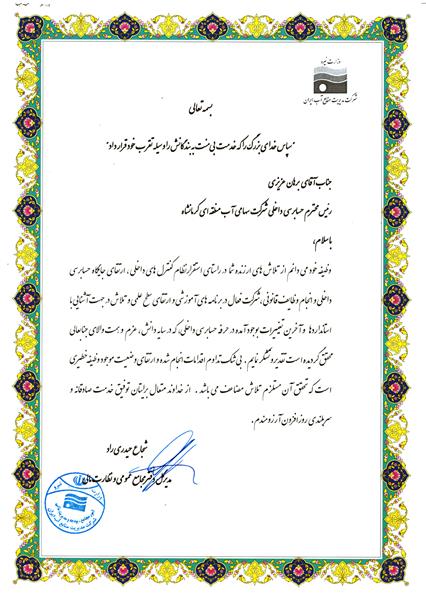 وزارت نیرو
شرکت مدیریت منابع آب ایران
بسمه تعالی
"سپاس خدای بزرگ را که خدمت بی منت به بندگانش را وسیله تقرب خود قرار داد"
جناب آقای برهان عزیزی
رئیس محترم حسابرسی داخلی شرکت سهامی آب منطقه ای کرمانشاه
باسلام،
وظیفه خود می دانم از تلاش های ارزنده شما در راستای استقرار نظام کنترل های داخلی، ارتقای جایگاه حسابرسی
داخلی و انجام وظایف قانونی، شرکت فعال در برنامه های آموزشی و ارتقای سطح علمی و تلاش در جهت آشنایی با
استانداردها و آخرین تغییرات بوجود آمده در حرفه حسابرسی داخلی، که در سایه دانش، عزم و همت والای جنابعالی
محقق گردیده است تقدیر و تشکر نمایم. بی شک تداوم اقدامات انجام شده و ارتقای وضعیت موجود وظیفه خطیری
است که تحقق آن مستلزم تلاش مضاعف می باشد. از خداوند متعال برایتان توفیق خدمت صادقانه و
سربلندی روزافزون آرزومندم.
شجاع حیدری راد
مدیرکل دفتر مجامع عمومی و نظارت های
شرکت مدیریت منابع آب ایران